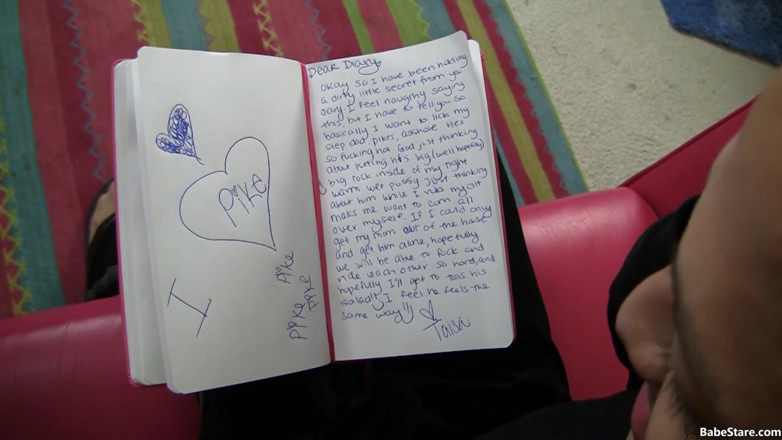 Dear Diary,
Okay so I have been hading
a dirty little secret from you
diary I feel naughty saying
this, but I have to tell you so
basically I want to lick my
step dad, pikes, asshole. Hes
so fucking hot God just thinking
about putting his big (well hopefully)
big cock inside of my tight
warm wet pussy just thinking
about him while I rub my clit
makes me want to cum all
over myself. If I could only
get my mom out of the house
and get him alone, hopefully
we will be able to fuck and
ride each other so hard, and
hopefully I'll get to toss his
salad!! I feel he feels the
same way!!
Taisa
pike
I
pike
pike
pike
BabeStare.com